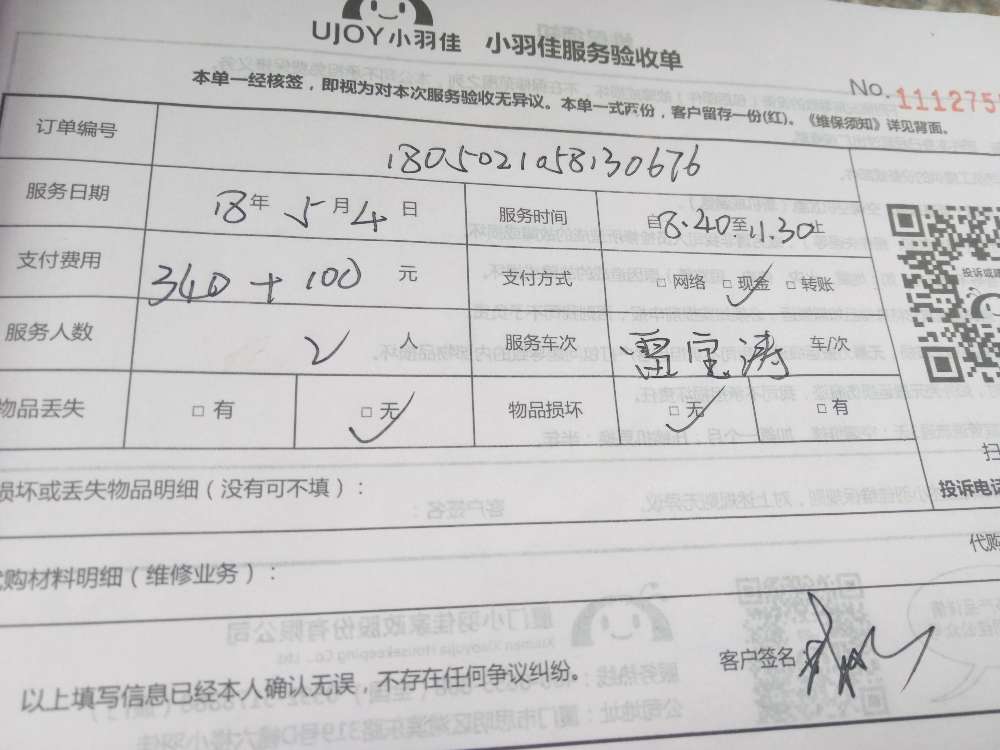 UJOY小羽佳 小羽佳服务验收单
No. 111275
本单一经核签，即视为对本次服务验收无异议。本单一式两份，客户留存一份(红)。《维保须知》详见背面。
订单编号 1805021058130676
服务日期 18年 5月4日 服务时间 自8.40至11.30止
支付费用 340+100 元 支付方式 □网络 □现金 □转账
服务人数 2 人 服务车次 雷宝涛 车/次
物品丢失 □有 □无 物品损坏 □无 □有
损坏或丢失物品明细（没有可不填）：
投诉电话
代购
代购材料明细（维修业务）：
客户签名
以上填写信息已经本人确认无误，不存在任何争议纠纷。